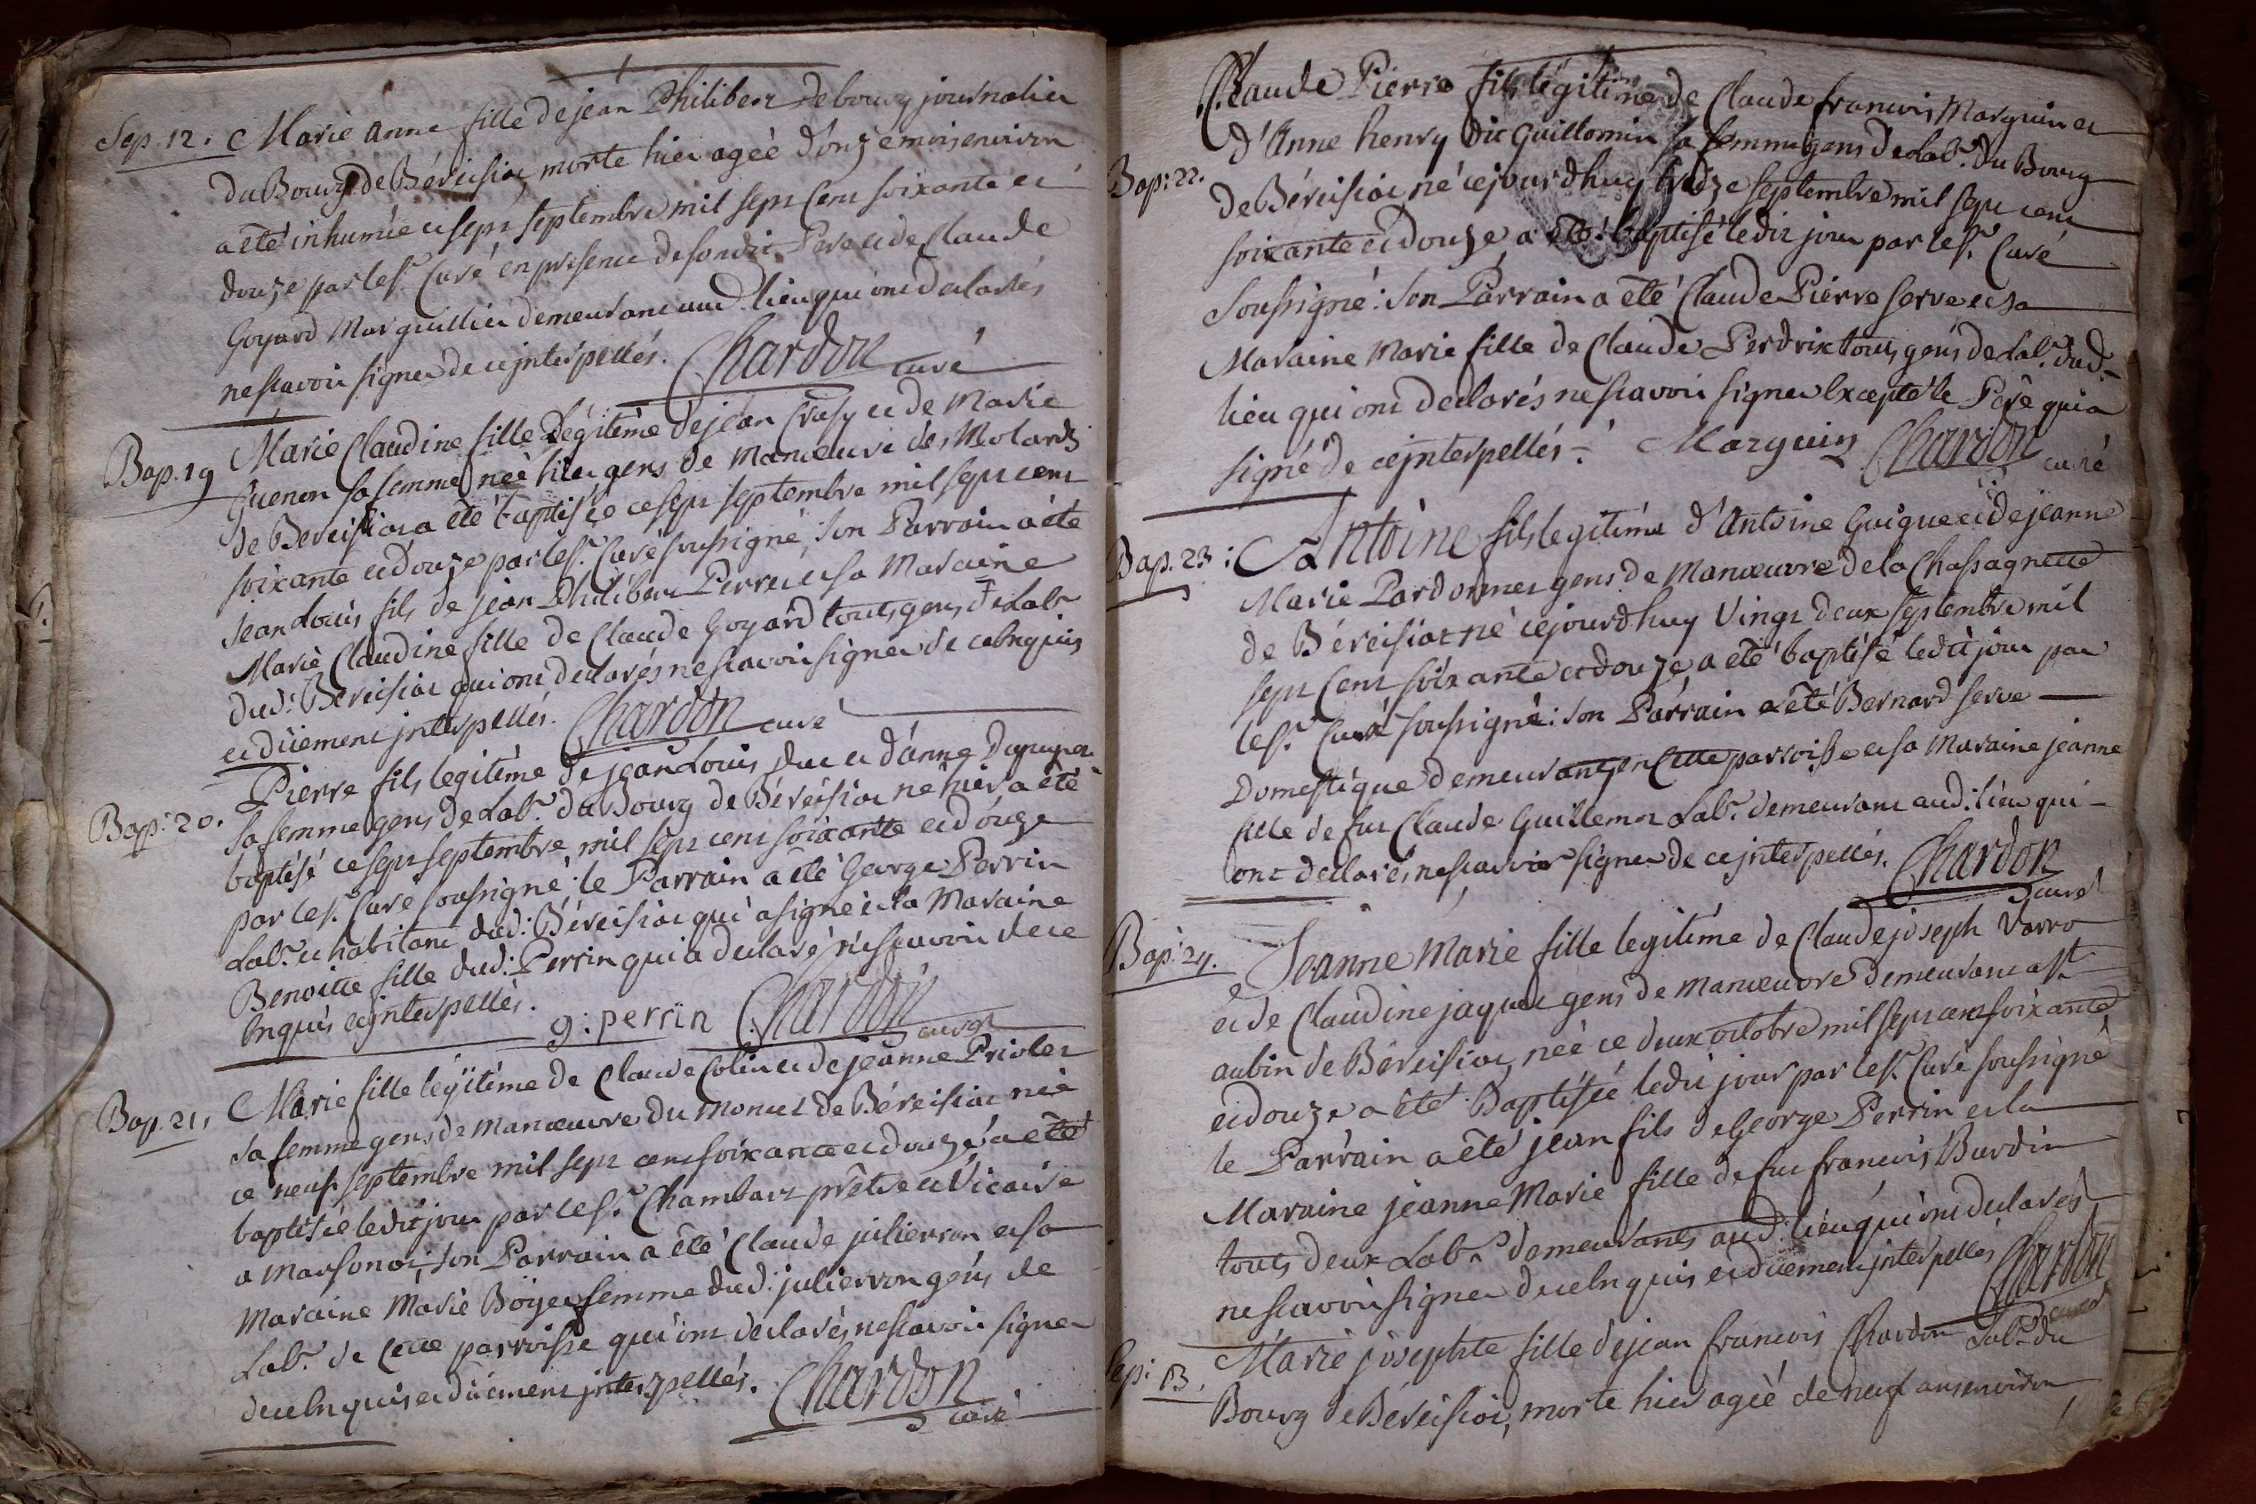 Sep. 12. Marie anne fille de jean Philibert debourg journalier
du Bourg de Béreisiat, morte hier ageé d'onze mois environ
a été inhumée ce sept septembre mil sept cent soixante et
douze par le sr. Curé en présence de sondit Pere et de Claude
Goyard Marguillier demeurant aud. lieu qui ont declarés
ne scavoir signer de ce jnterpellés. Chardon curé
Bap. 19 Marie Claudine fille Légitime de jean Crasy et de Marie
Guenon sa femme neè hier gens de Manoeuvre des Molards
de Bereisiat a été baptisée ce sept septembre mil sept cent
soixante et douze par le sr. Curé soussigné, son Parrain a été
Jean Louis fils de jean Philibert Perret et sa Maraine
Marie Claudine fille de Claude Goyard touts gens de Labr.
dud: Bereisiat qui ont declarés ne scavoir signer de ce Enquis
et düement jnterpellés. Chardon curé
Bap: 20. Pierre fils legitime de jean Louis Duc et d'anne
sa femme gens de Labr. du Bourg de Béreisiat né hier a été
baptisé ce sept septembre mil sept cent soixante et douze
par le sr. Curé soussigné: le Parrain a été George Perrin
Labr. et habitant dud: Béreisiat qui a signé et la Maraine
Benoitte fille dud: Perrin qui a declaré ne scavoir de ce
Enquis et jnterpellés. g: perrin Chardon curé
Bap. 21, Marie fille legitime de Claude Colin et de jeanne Priolet
sa femme gens de manoeuvre du moncet de Béreisiat neè
ce neuf septembre mil sept cent soixante et douze a été
baptisée ledit jour par le sr. Chambard prêtre et Vicaire
a Marsonas, son Parrain a été Claude julierron et sa
Maraine Marie Böyer femme dud: julierron gens de
Labr. de Cette parroisse qui ont declarés ne scavoir signer
de ce Enquis et düement jnterpellés. Chardon
curé
Claude Pierre fils légitime de Claude francois Marguin et
d'Anne henry dit Guillemin sa femme gens de Labr. du Bourg
Bap: 22. de Béreisiat, né cejourdhuy treize septembre mil sept cent
soixante et douze a été baptisé ledit jour par le sr. Curé
soussigné: son Parrain a été Claude Pierre serve et sa
Maraine Marie fille de Claude Perdrix touts gens de Labr. dud.
lieu qui ont declarés ne scavoir signer Excepté le Pere qui a
signé de ce jnterpellés. Marguin Chardon curé
Bap. 23: Antoine fils legitime d'Antoine Guigue et de jeanne
Marie Pardonnet gens de Manoeuvre de la Chassagnette
de Béreisiat né cejourdhuy Vingt deux septembre mil
sept Cent soixante et douze, a été baptisé ledit jour par
le sr. Curé soussigné: son Parrain a été Bernard serve
Domestique demeurant en Cette parroisse et sa Maraine jeanne
fille de fut Claude Guillemot Labr. demeurant aud: lieu qui
ont declarés ne scavoir signer de ce jnterpellés. Chardon
curé
Bap: 24. Jeanne Marie fille legitime de Claude joseph Varro
et de Claudine jaquet gens de Manoeuvre demeurant a St.
aubin de Béreisiat, neè ce deux octobre mil sept cent soixante
et douze a été Baptisée ledit jour par le sr. Curé soussigné
le Parrain a été jean fils de George Perrin et la
Maraine jeanne Marie fille de fut francois Burdin
touts deux Labr. demeurants aud. lieu qui ont declarés
ne scavoir signer de ce Enquis et düement jnterpellés Chardon
curé
Sep: 13, Marie josephte fille de jean francois Chardon Labr. du
Bourg de Béreisiat, morte hier ageè de neuf ans environ